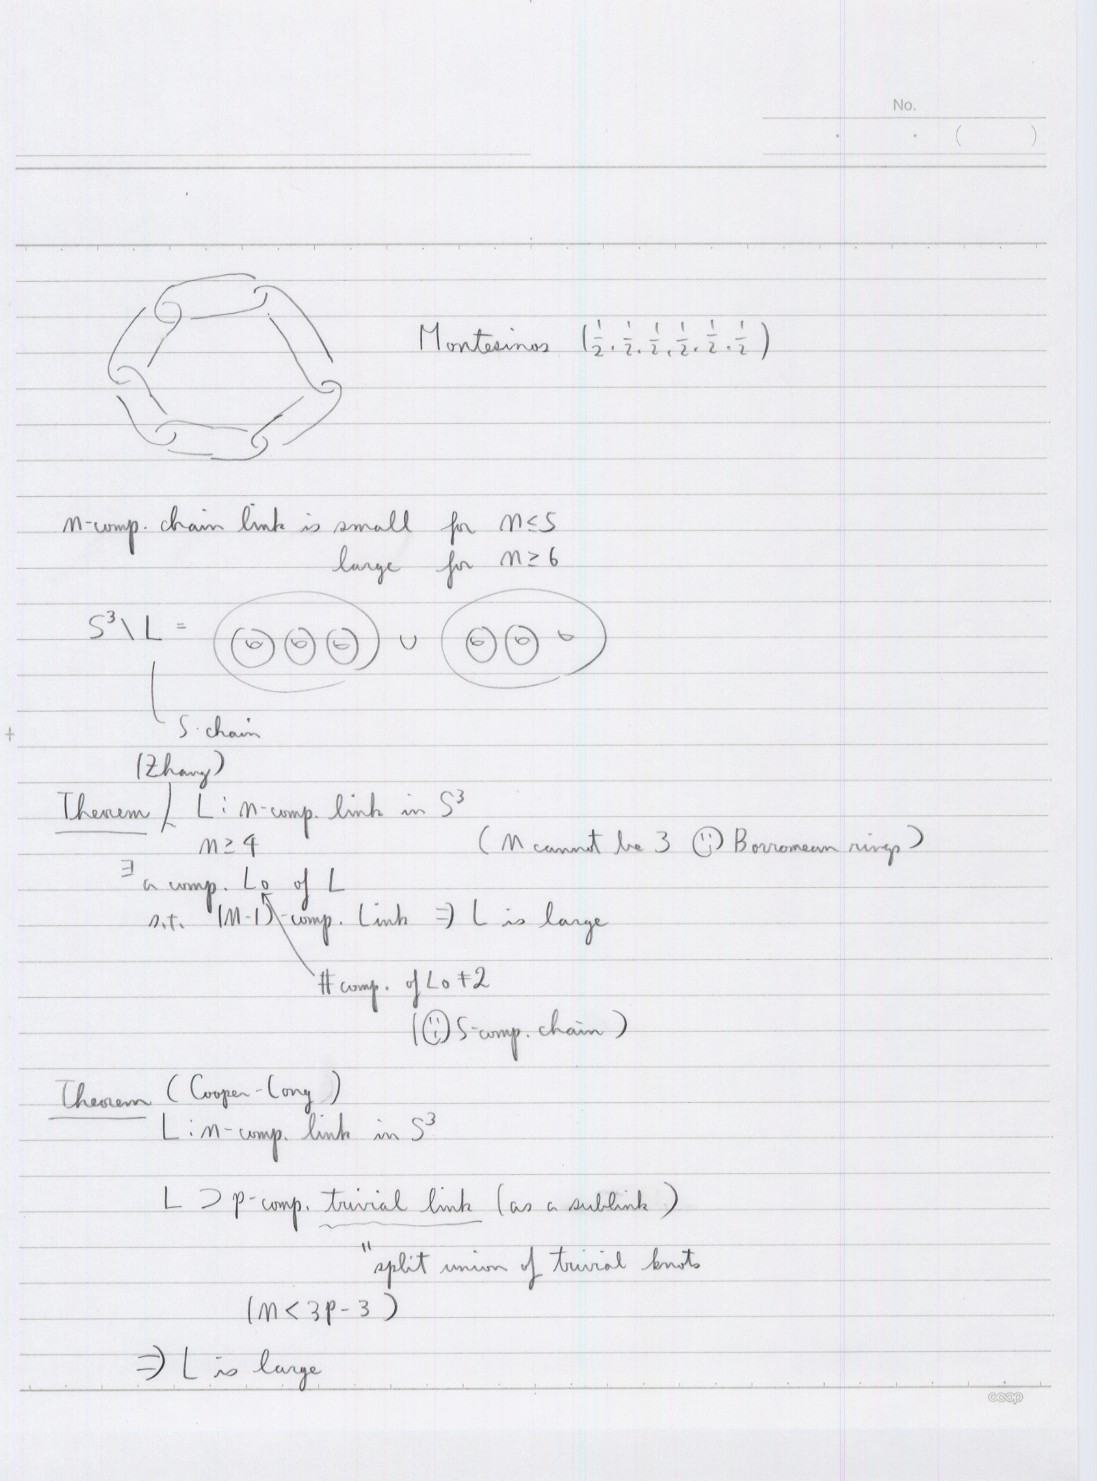 No.
· · ( )
Montesinos (1/2, 1/2, 1/2, 1/2, 1/2, 1/2)
n-comp. chain link is small for n≤5
large for n≥6
S³\L = ∪
5-chain
(Zhang)
Theorem L : n-comp. link in S³
n≥4 (n cannot be 3 ∵ Borromean rings)
∃ a comp. L₀ of L
s.t. (n-1)-comp. link ⇒ L is large
# comp. of L₀ ≠ 2
(∵ 5-comp. chain)
Theorem (Cooper-Long)
L : n-comp. link in S³
L ⊃ p-comp. trivial link (as a sublink)
" split union of trivial knots
(n < 3p-3)
⇒ L is large
coop